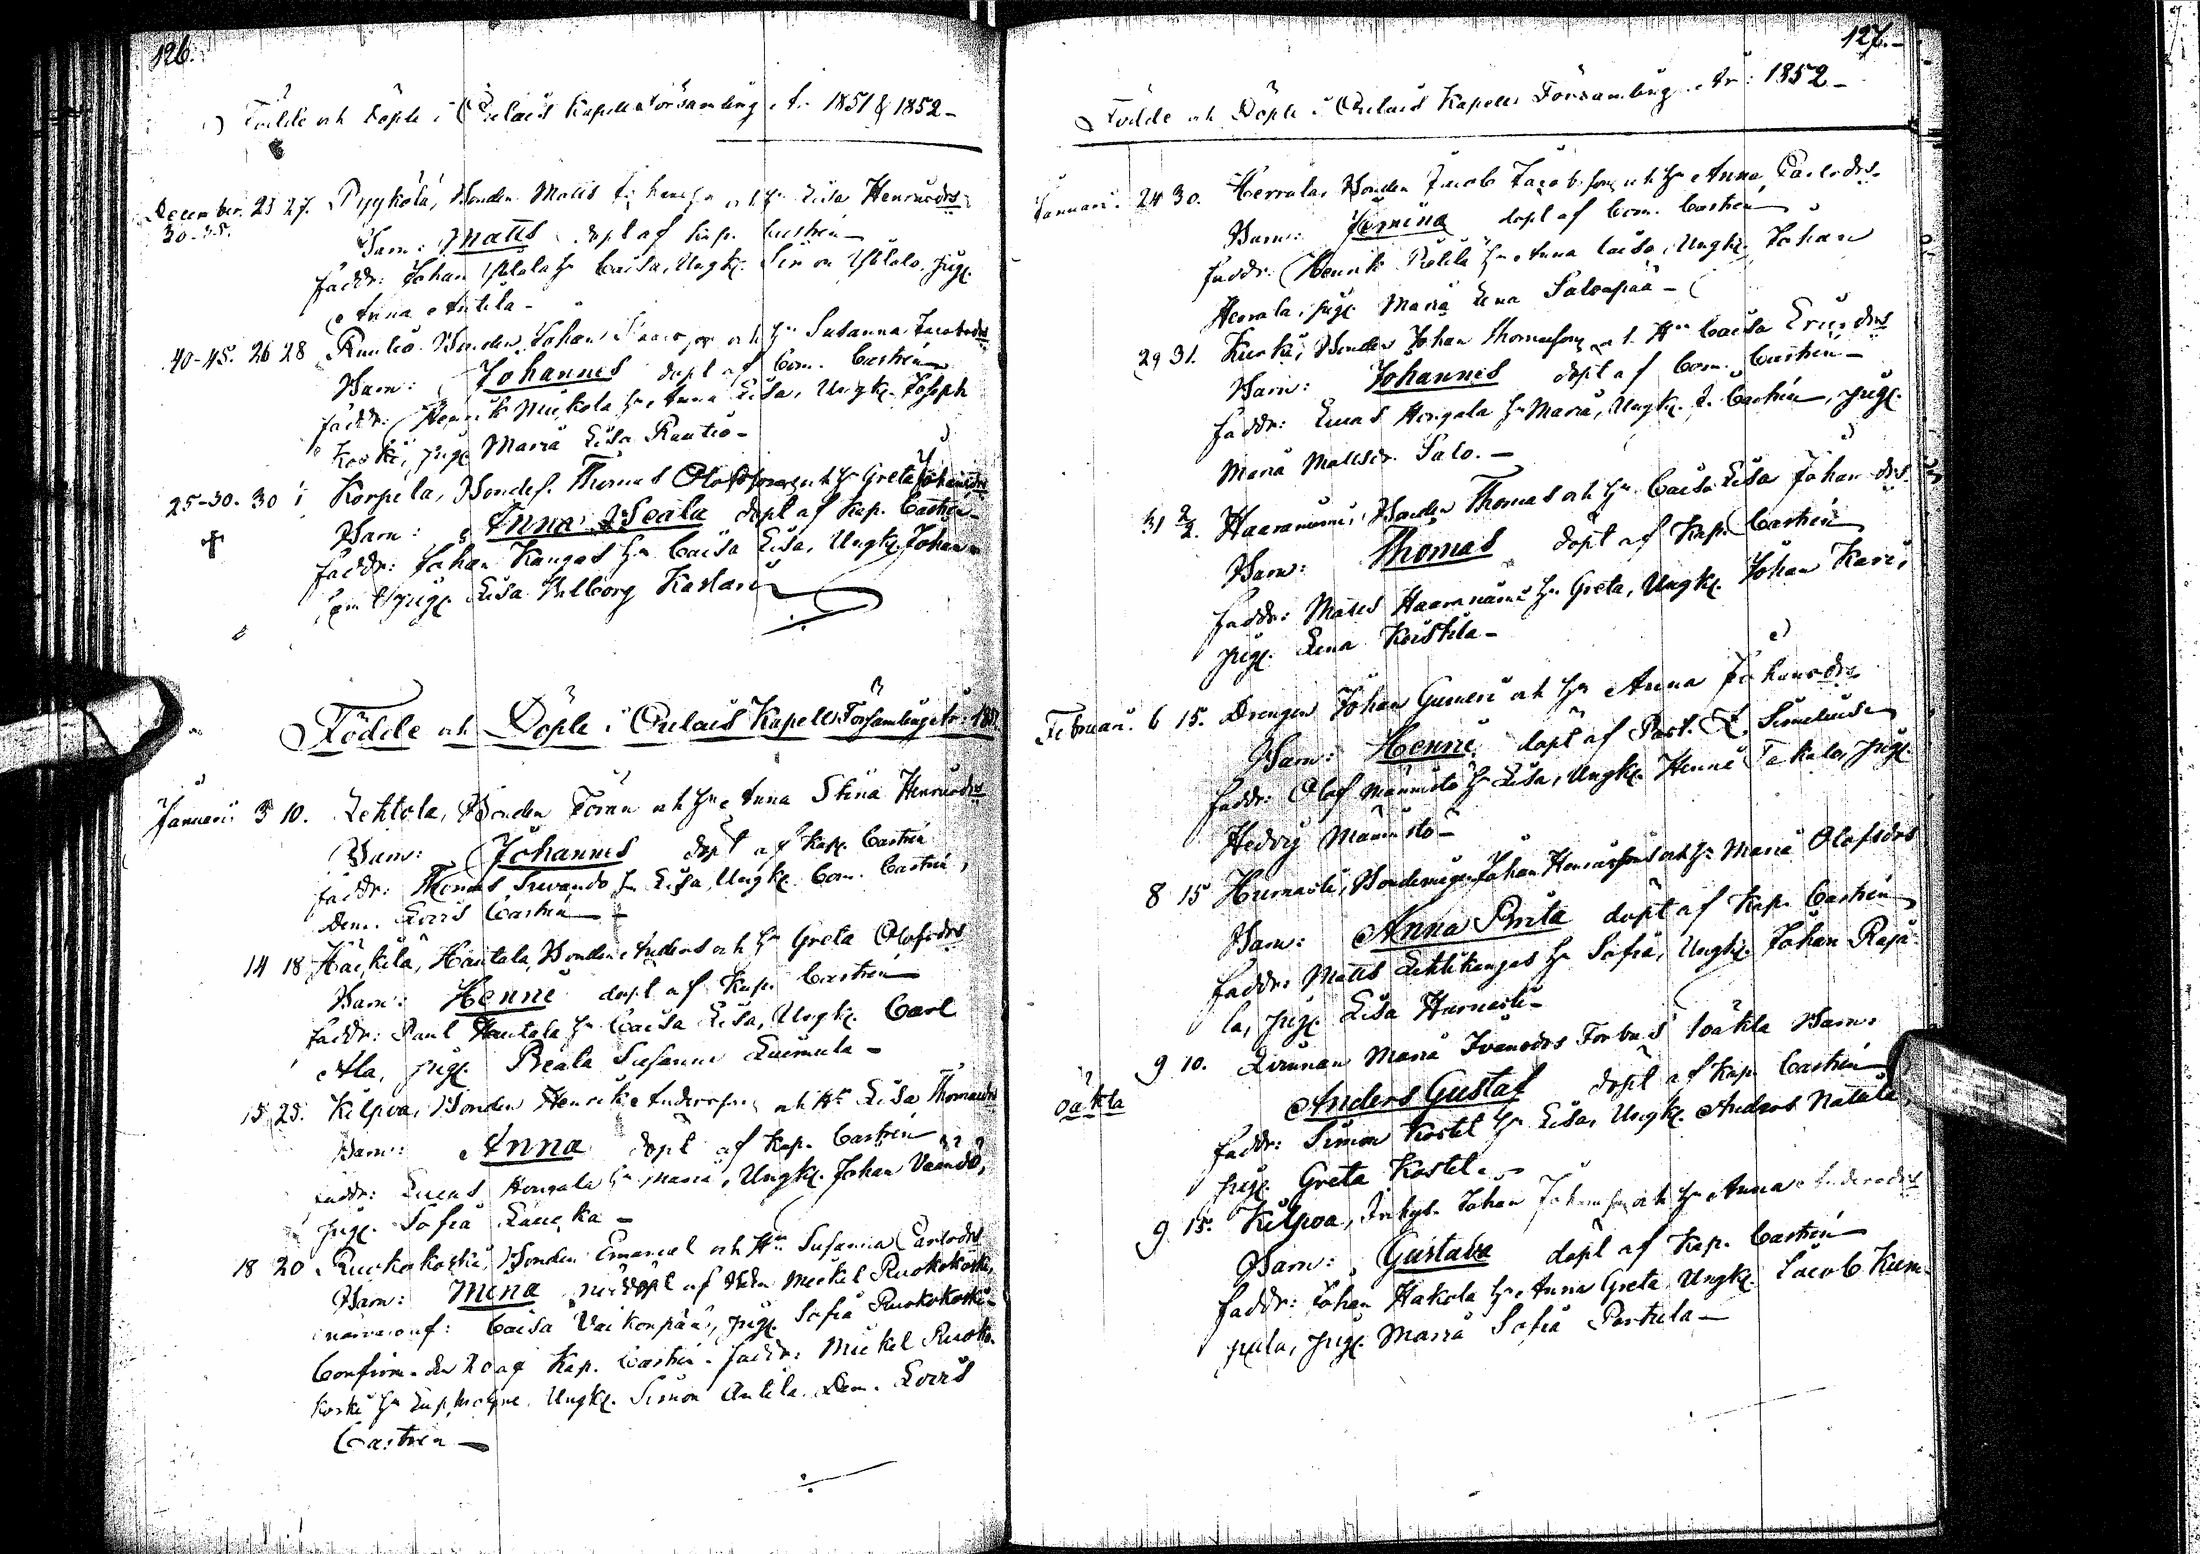 126.
Födde och Döpte i Orelais Kapells Församling År 1851 & 1852 -
December. 25 27. Pyykölä, Bonden Matts Johansson och Hu Lisa Henriksdr
30-35. Barn: Matts döpt af Kap. Castrén
Faddr: Johan Ylitalo Hu Caisa, Ungk. Simon Ylitalo, pig.
Anna Antila -
40-45. 26 28 Rautio Bonden Johan och Hu Susanna Jacobsdr
Barn: Johannes döpt af Com. Castrén
Faddr: Henrik Niskola Hu Anna Lisa, Ungk. Joseph
Koski, pig. Maria Lisa Rautio -
25-30. 30 1 Korpela, Bondes. Thomas Olofsson och Hu Greta Johansdr
Barn: Anna döpt af Kap. Castrén
Faddr: Johan Kangas Hu Caisa Lisa, Ungk. Johan
pig. Lisa Wilborg
Födde och Döpte i Orelais Kapells Församling År: 1852
Januari 3 10. Lehtola, Bonden och Hu Anna Stina Henriksdr
Barn: Johannes döpt af Kap. Castrén
Faddr: Thomas Hu Lisa, Ungk. Com. Castrén,
Dem. Lovis Castrén -
14 18 Häikilä, Hautala, Bonden Anders och Hu Greta Olofsdr
Barn: Henric döpt af Kap. Castrén
Faddr: Paul Hautala Hu Caisa Lisa, Ungk. Carl
Ala, pig. Beata Susanna -
15 25. Kilpua, Bonden Henrik Andersson och Hu Lisa Thomasdr
Barn: Anna döpt af Kap. Castrén
Faddr: Lucas Hongala Hu Maria, Ungk. Johan
pig. Sofia -
18 20 Ruokokoski, Bonden Emanuel och Hu Susanna Carlsdr
Barn: Mina nöddöpt af Michel Ruokokoski,
närvaro af: Caisa Vaikonpää, pig. Sofia Ruokokoski
Confirm. den 20 af Kap. Castrén. Faddr: Mickel Ruoko-
koski Hu Ungk. Simon Antila. Dem. Lovis
Castrén -
127.
Födde och Döpte i Orelais Kapells Församling År: 1852 -
Januari. 24 30. Herrala, Bonden Jacob Jacobsson och Hu Anna Carlsdr.
Barn: döpt af Com. Castrén
Faddr: Henrik Hu Anna Caisa, Ungk. Johan
Herrala, pig. Maria Lena Salonpää -
29 31. Kurki, Bonden Johan Thomasson och Hu Caisa Ericsdr
Barn: Johannes döpt af Com. Castrén -
Faddr: Lucas Hongala Hu Maria, Ungk. Castrén, pig.
Maria Mattsdr. Salo. -
31 2/2. Haaraniemi, Bonden Thomas och Hu Caisa Lisa Johansdr.
Barn: Thomas döpt af Kap. Castrén
Faddr: Matts Haaraniemi Hu Greta, Ungk. Johan Kari,
pig. Lena Koistila -
Februari. 6 15. Drengen Johan och Hu Anna Johansdr
Barn: Henric döpt af Past. Simelius
Faddr: Olof Männistö Hu Lisa, Ungk. Henric Takalo, pig.
Hedvig Männistö -
8 15 Hurnasti, Johan Henriksson och Hu Maria Olofsdr
Barn: Anna Brita döpt af Kap. Castrén
Faddr: Matts Lehtikangas Hu Sofia, Ungk. Johan Raja-
la, pig. Lisa Hurnasti -
9 10. Qvinnan Maria Forbus oäkta Barn:
oäkta Anders Gustaf döpt af Kap. Castrén
Faddr: Simon Kostet Hu Lisa, Ungk. Anders Natala,
pig. Greta Kostet. -
9 15. Kilpua, Inhys. Johan Johansson och Hu Anna Andersdr
Barn: Gustava döpt af Kap. Castrén
Faddr: Johan Hakola Hu Anna Greta Ungk. Jacob Kum-
pula, pig. Maria Sofia Parkila -